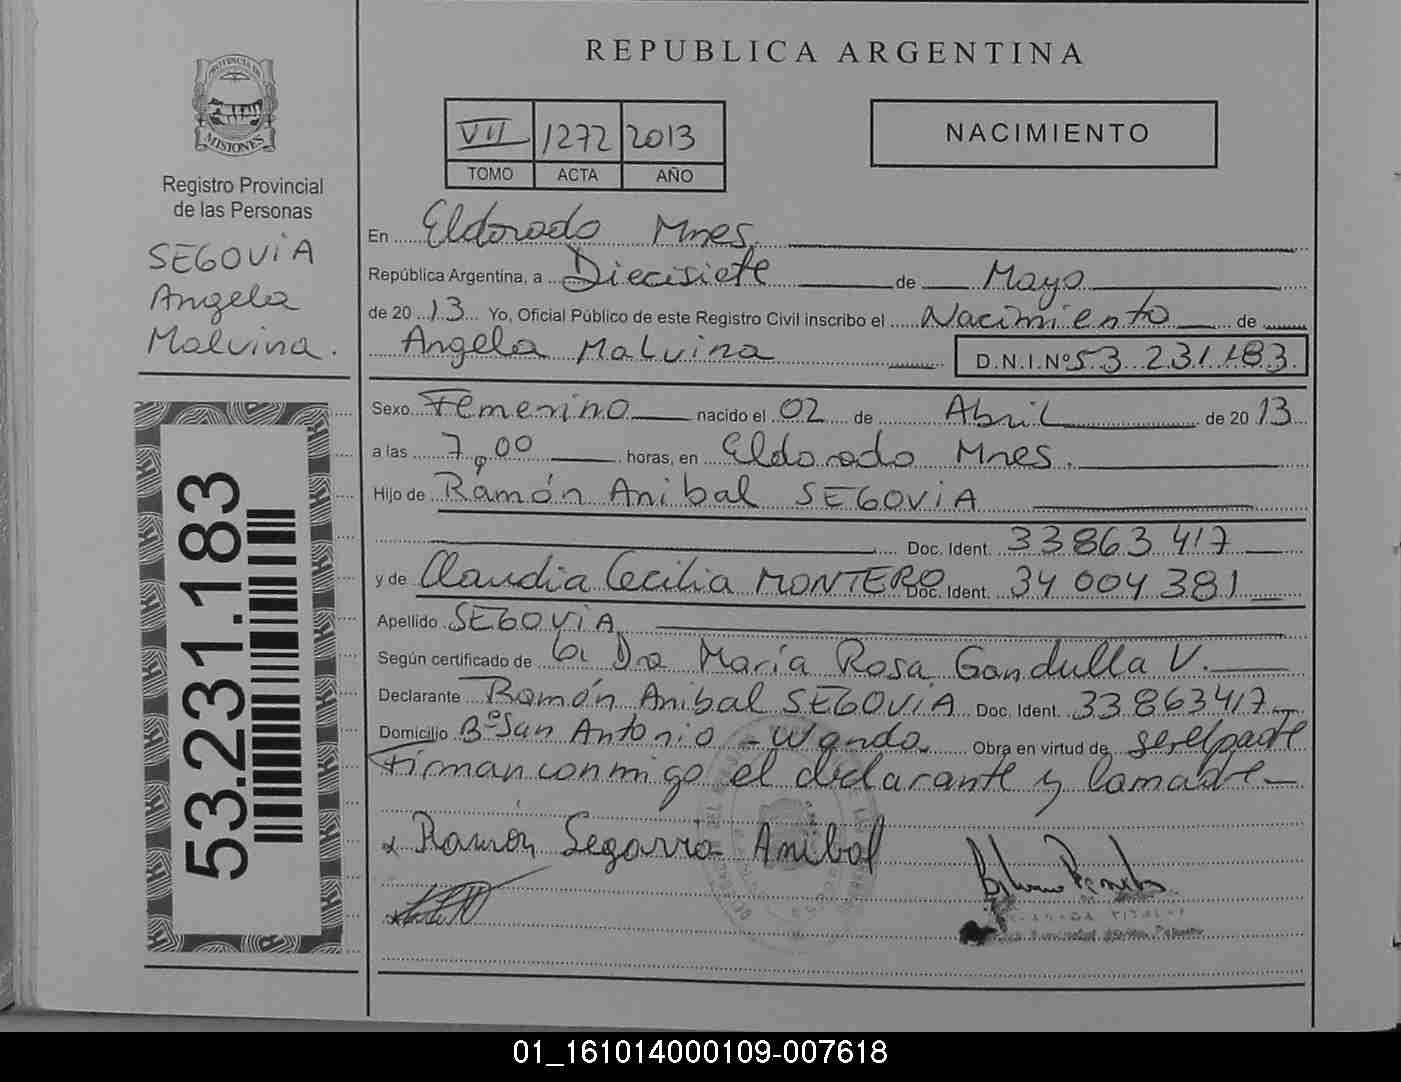 REPUBLICA ARGENTINA
PROVINCIA DE
MISIONES
Registro Provincial
de las Personas
SEGOVIA
Angela
Malvina.
VII 1272 2013
TOMO ACTA AÑO
NACIMIENTO
En Eldorado Mnes.
República Argentina, a Diecisiete de Mayo
de 2013 Yo, Oficial Público de este Registro Civil inscribo el Nacimiento de
Angela Malvina D.N.I.Nº 53.231.183.
Sexo Femenino nacido el 02 de Abril de 2013
a las 7,00 horas, en Eldorado Mnes.
Hijo de Ramón Anibal SEGOVIA
Doc. Ident. 33 863 417
y de Claudia Cecilia MONTERO Doc. Ident. 34 004 381
Apellido SEGOVIA
Según certificado de la Dra María Rosa Gandulla V.
Declarante Ramón Anibal SEGOVIA Doc. Ident. 33 863 417
Domicilio Bº San Antonio - Wanda. Obra en virtud de ser el padre
Firman conmigo el declarante y la madre
Ramón Segovia Anibal
53.231.183
01_161014000109-007618